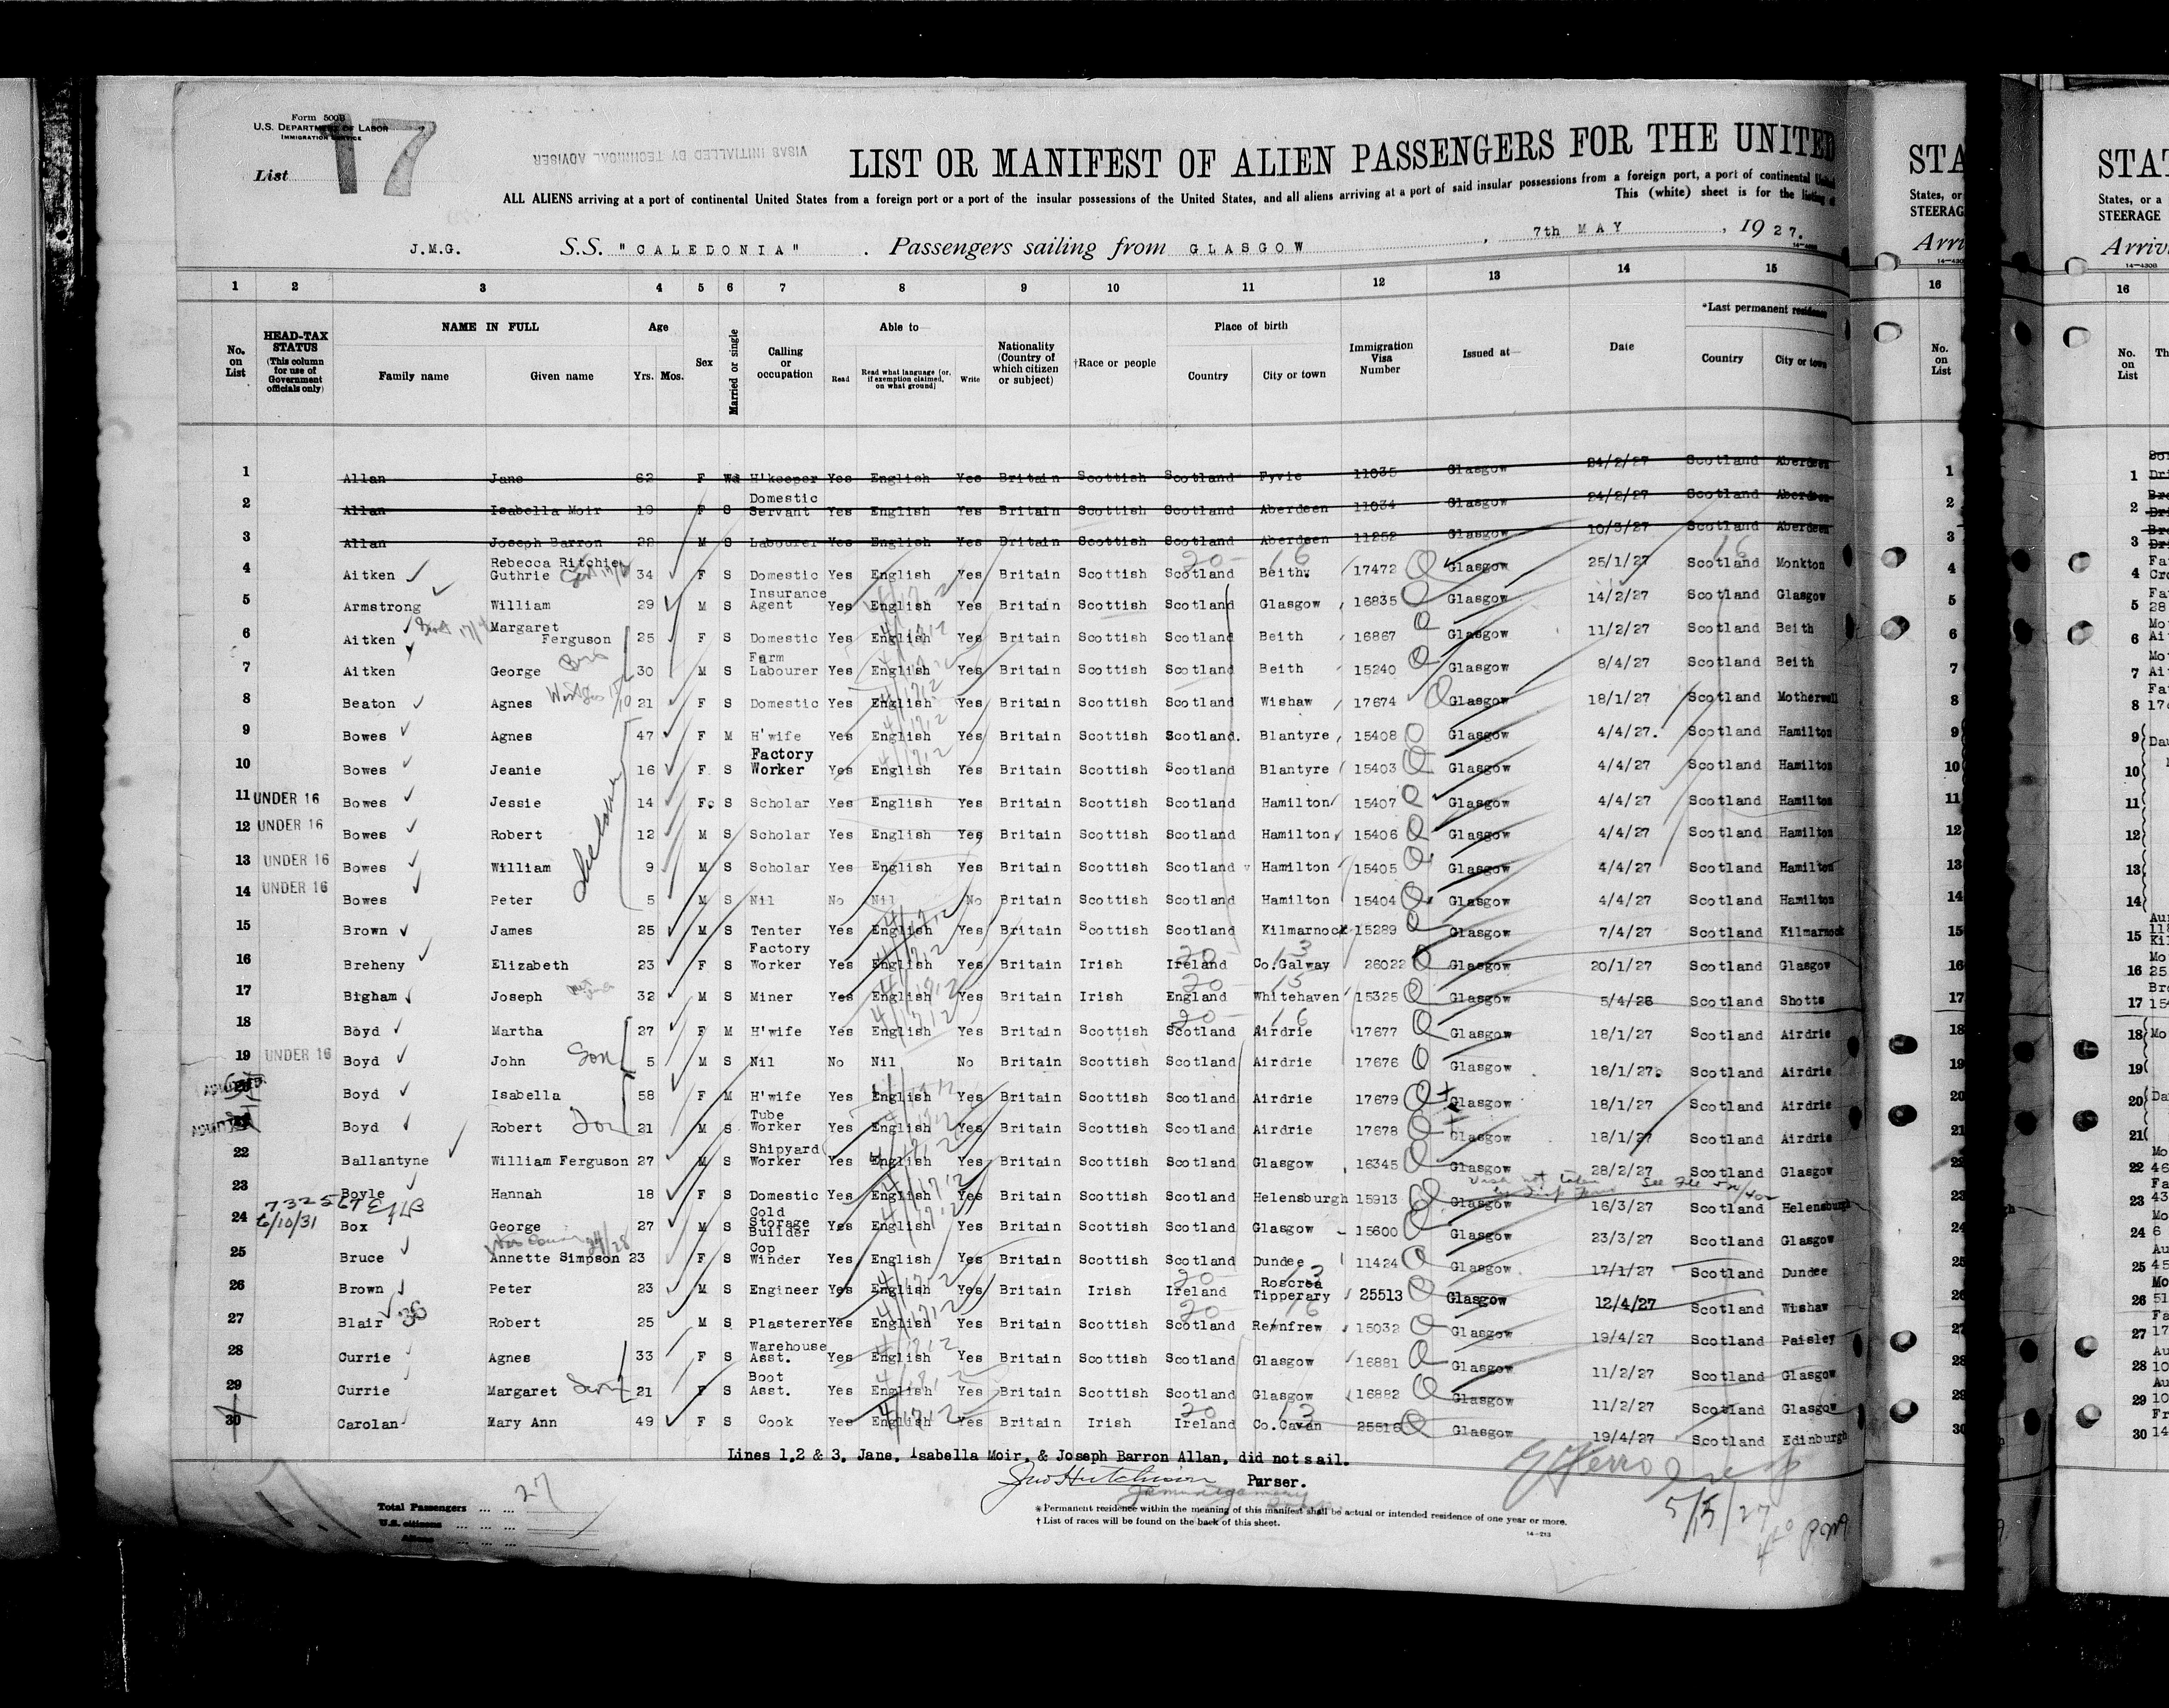 Form 500B
U.S. DEPARTMENT OF LABOR
IMMIGRATION SERVICE
List 17
VISAS INITIALLED BY TECHNICAL ADVISER
LIST OR MANIFEST OF ALIEN PASSENGERS FOR THE UNITED
ALL ALIENS arriving at a port of continental United States from a foreign port or a port of the insular possessions of the United States, and all aliens arriving at a port of said insular possessions from a foreign port, a port of continental United
This (white) sheet is for the listing of
J.M.G. S.S. "CALEDONIA". Passengers sailing from GLASGOW, 7th MAY, 1927.
1 2 3 4 5 6 7 8 9 10 11 12 13 14 15
No. on List HEAD-TAX STATUS (This column for use of Government officials only) NAME IN FULL Family name Given name Age Yrs. Mos. Sex Married or single Calling or occupation Able to— Read Read what language (or, if exemption claimed, on what ground) Write Nationality (Country of which citizen or subject) †Race or people Place of birth Country City or town Immigration Visa Number Issued at— Date *Last permanent residence Country City or town
1 Allan Jane 62 F Wd H'keeper Yes English Yes Britain Scottish Scotland Fyvie 11035 Glasgow 24/2/27 Scotland Aberdeen
2 Allan Isabella Moir 19 F S Domestic Servant Yes English Yes Britain Scottish Scotland Aberdeen 11034 Glasgow 24/2/27 Scotland Aberdeen
3 Allan Joseph Barron 22 M S Labourer Yes English Yes Britain Scottish Scotland Aberdeen 11252 Glasgow 10/3/27 Scotland Aberdeen
4 Aitken Rebecca Ritchie Guthrie 34 F S Domestic Yes English Yes Britain Scottish Scotland Beith 17472 Glasgow 25/1/27 Scotland Monkton
5 Armstrong William 29 M S Insurance Agent Yes English Yes Britain Scottish Scotland Glasgow 16835 Glasgow 14/2/27 Scotland Glasgow
6 Aitken Margaret Ferguson 25 F S Domestic Yes English Yes Britain Scottish Scotland Beith 16867 Glasgow 11/2/27 Scotland Beith
7 Aitken George 30 M S Farm Labourer Yes English Yes Britain Scottish Scotland Beith 15240 Glasgow 8/4/27 Scotland Beith
8 Beaton Agnes 21 F S Domestic Yes English Yes Britain Scottish Scotland Wishaw 17674 Glasgow 18/1/27 Scotland Motherwell
9 Bowes Agnes 47 F M H'wife Yes English Yes Britain Scottish Scotland. Blantyre 15408 Glasgow 4/4/27. Scotland Hamilton
10 Bowes Jeanie 16 F S Factory Worker Yes English Yes Britain Scottish Scotland Blantyre 15403 Glasgow 4/4/27 Scotland Hamilton
11 UNDER 16 Bowes Jessie 14 F. S Scholar Yes English Yes Britain Scottish Scotland Hamilton 15407 Glasgow 4/4/27 Scotland Hamilton
12 UNDER 16 Bowes Robert 12 M S Scholar Yes English Yes Britain Scottish Scotland Hamilton 15406 Glasgow 4/4/27 Scotland Hamilton
13 UNDER 16 Bowes William 9 M S Scholar Yes English Yes Britain Scottish Scotland Hamilton 15405 Glasgow 4/4/27 Scotland Hamilton
14 UNDER 16 Bowes Peter 5 M S Nil No Nil No Britain Scottish Scotland Hamilton 15404 Glasgow 4/4/27 Scotland Hamilton
15 Brown James 25 M S Tenter Yes English Yes Britain Scottish Scotland Kilmarnock 15289 Glasgow 7/4/27 Scotland Kilmarnock
16 Breheny Elizabeth 23 F S Factory Worker Yes English Yes Britain Irish Ireland Co.Galway 26022 Glasgow 20/1/27 Scotland Glasgow
17 Bigham Joseph 32 M S Miner Yes English Yes Britain Irish England Whitehaven 15325 Glasgow 5/4/26 Scotland Shotts
18 Boyd Martha 27 F M H'wife Yes English Yes Britain Scottish Scotland Airdrie 17677 Glasgow 18/1/27 Scotland Airdrie
19 UNDER 16 Boyd John Son 5 M S Nil No Nil No Britain Scottish Scotland Airdrie 17676 Glasgow 18/1/27. Scotland Airdrie
Boyd Isabella 58 F M H'wife Yes English Yes Britain Scottish Scotland Airdrie 17679 Glasgow 18/1/27 Scotland Airdrie
Boyd Robert Son 21 M S Tube Worker Yes English Yes Britain Scottish Scotland Airdrie 17678 Glasgow 18/1/27 Scotland Airdrie
22 Ballantyne William Ferguson 27 M S Shipyard Worker Yes English Yes Britain Scottish Scotland Glasgow 16345 Glasgow 28/2/27 Scotland Glasgow
23 Boyle Hannah 18 F S Domestic Yes English Yes Britain Scottish Scotland Helensburgh 15913 Glasgow 16/3/27 Scotland Helensburgh
24 6/10/31 Box George 27 M S Cold Storage Builder Yes English Yes Britain Scottish Scotland Glasgow 15600 Glasgow 23/3/27 Scotland Glasgow
25 Bruce Annette Simpson 23 F S Cop Winder Yes English Yes Britain Scottish Scotland Dundee 11424 Glasgow 17/1/27 Scotland Dundee
26 Brown Peter 23 M S Engineer Yes English Yes Britain Irish Ireland Roscrea Tipperary 25513 Glasgow 12/4/27 Scotland Wishaw
27 Blair Robert 25 M S Plasterer Yes English Yes Britain Scottish Scotland Renfrew 15032 Glasgow 19/4/27 Scotland Paisley
28 Currie Agnes 33 F S Warehouse Asst. Yes English Yes Britain Scottish Scotland Glasgow 16881 Glasgow 11/2/27 Scotland Glasgow
29 Currie Margaret 21 F S Boot Asst. Yes English Yes Britain Scottish Scotland Glasgow 16882 Glasgow 11/2/27 Scotland Glasgow
30 Carolan Mary Ann 49 F S Cook Yes English Yes Britain Irish Ireland Co.Cavan 25516 Glasgow 19/4/27 Scotland Edinburgh
Lines 1,2 & 3, Jane, Isabella Moir, & Joseph Barron Allan, did not sail.
Jno Hutchison Purser.
Total Passengers ... ... 27
U.S. citizens ... ... ...
Aliens ... ... ...
* Permanent residence within the meaning of this manifest shall be actual or intended residence of one year or more.
† List of races will be found on the back of this sheet.
14—213
5/15/27
STA
States, or
STEERAG
Arri
16
No. on List
STAT
States, or a
STEERAGE
Arriv
16
No. on List